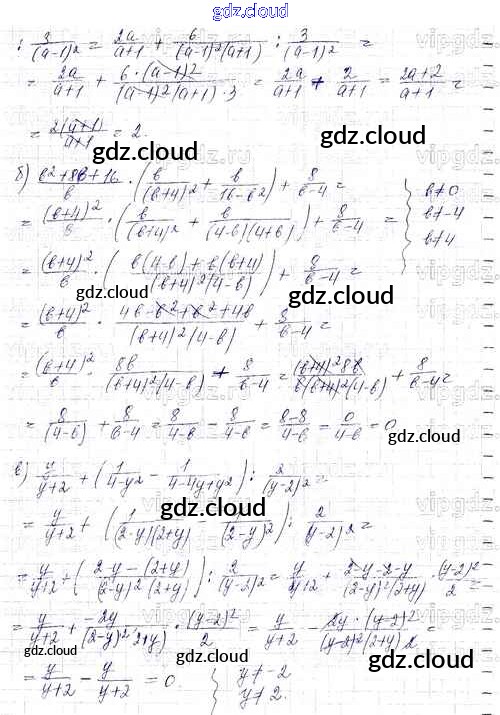 gdz.cloud
: 3/(a-1)² = 2a/(a+1) + 6/((a-1)²(a+1)) : 3/(a-1)² =
= 2a/(a+1) + 6·(a-1)²/((a-1)²(a+1)·3) = 2a/(a+1) + 2/(a+1) = (2a+2)/(a+1) =
= 2(a+1)/(a+1) = 2.
gdz.cloud
gdz.cloud
б) (в²+8в+16)/в · (в/(в+4)² + в/(16-в²)) + 8/(в-4) = { в≠0
= (в+4)²/в · (в/(в+4)² + в/((4-в)(4+в))) + 8/(в-4) = в≠-4
в≠4
= (в+4)²/в · ((в(4-в)+в(в+4))/((в+4)²(4-в))) + 8/(в-4) =
gdz.cloud
gdz.cloud
= (в+4)²/в · (4в-в²+в²+4в)/((в+4)²(4-в)) + 8/(в-4) =
= (в+4)²/в · 8в/((в+4)²(4-в)) + 8/(в-4) = (в+4)²8в/(в(в+4)²(4-в)) + 8/(в-4) =
= 8/(4-в) + 8/(в-4) = 8/(4-в) - 8/(4-в) = (8-8)/(4-в) = 0/(4-в) = 0
gdz.cloud
в) y/(y+2) + (1/(4-y²) - 1/(4-4y+y²)) : 2/(y-2)² =
gdz.cloud
= y/(y+2) + (1/((2-y)(2+y)) - 1/(2-y)²) : 2/(y-2)² =
= y/(y+2) + ((2-y-(2+y))/((2-y)²(2+y))) : 2/(y-2)² = y/(y+2) + (2-y-2-y)/((2-y)²(2+y)) · (y-2)²/2 =
= y/(y+2) + -2y/((2-y)²(2+y)) · (y-2)²/2 = y/(y+2) - 2y·(y-2)²/((y-2)²(2+y)2) =
gdz.cloud
gdz.cloud
= y/(y+2) - y/(y+2) = 0. { y≠-2
y≠2.